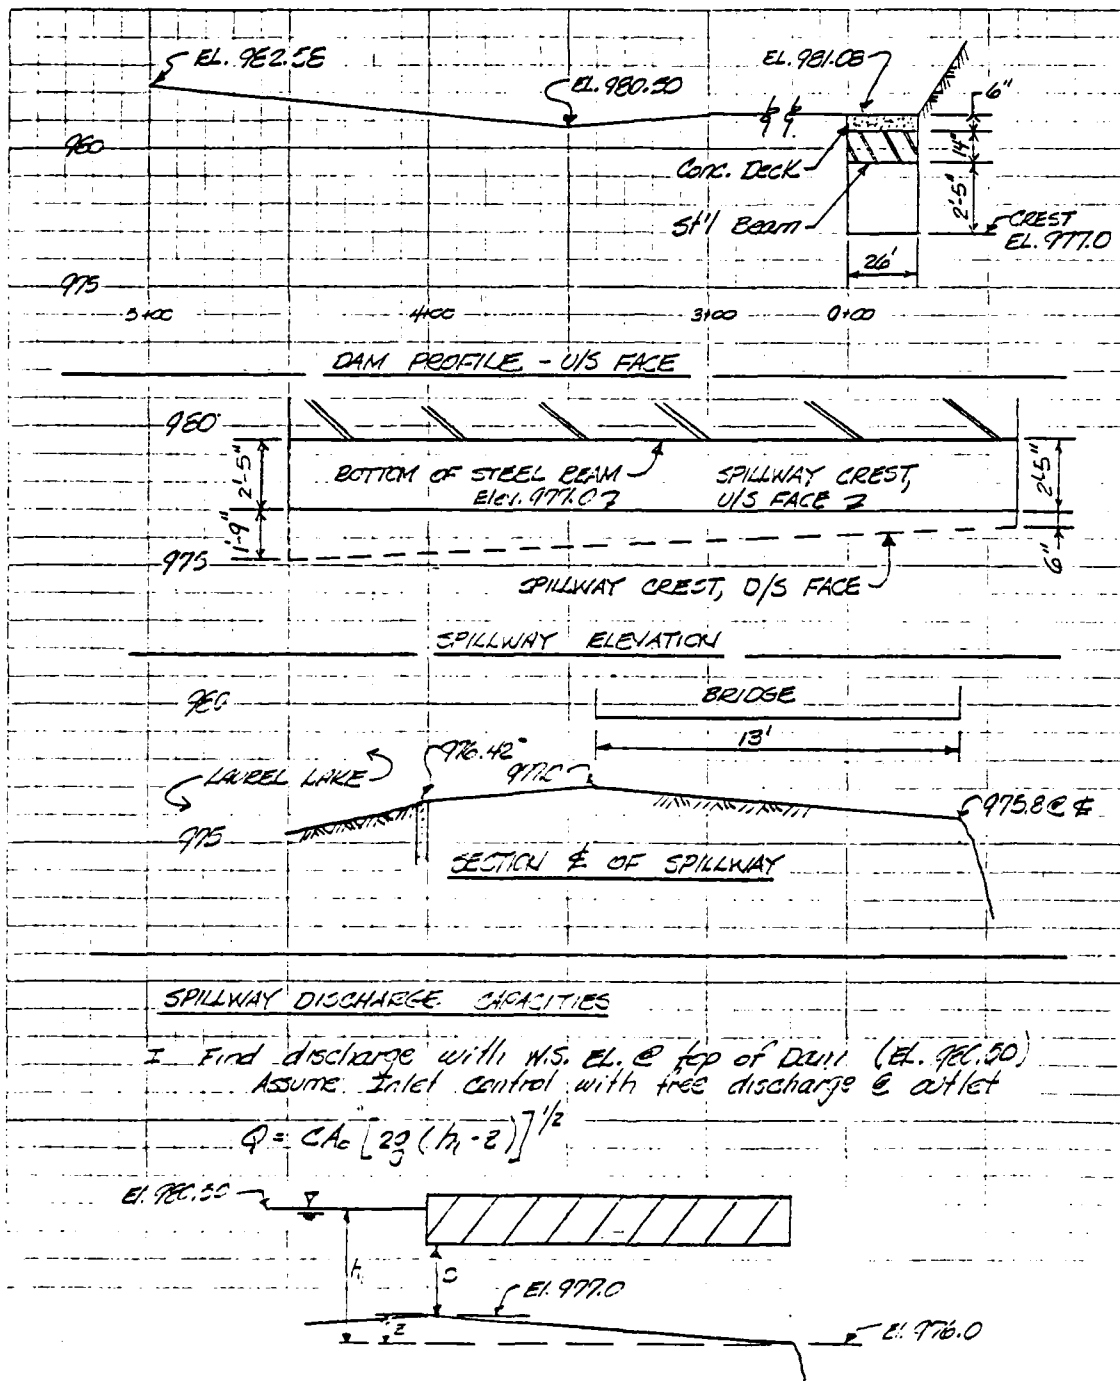 EL. 982.58
EL. 980.50
EL. 981.08
6"
980
14"
Conc. Deck
2'-5"
St'l Beam
CREST
EL. 977.0
26'
975
5+00 4+00 3+00 0+00
DAM PROFILE - U/S FACE
980
2'-5"
BOTTOM OF STEEL BEAM
Elev. 977.0
SPILLWAY CREST,
U/S FACE
2'-5"
1'-9"
975
6"
SPILLWAY CREST, D/S FACE
SPILLWAY ELEVATION
980
BRIDGE
13'
976.42
LAUREL LAKE
977.0
975.8 @ ℄
975
SECTION ℄ OF SPILLWAY
SPILLWAY DISCHARGE CAPACITIES
I Find discharge with W.S. EL. @ top of Dam (EL. 980.50)
Assume Inlet control with free discharge @ outlet
Q = CAc [2g (h, - z)]^1/2
El. 980.50
h,
D
El. 977.0
z
El. 976.0